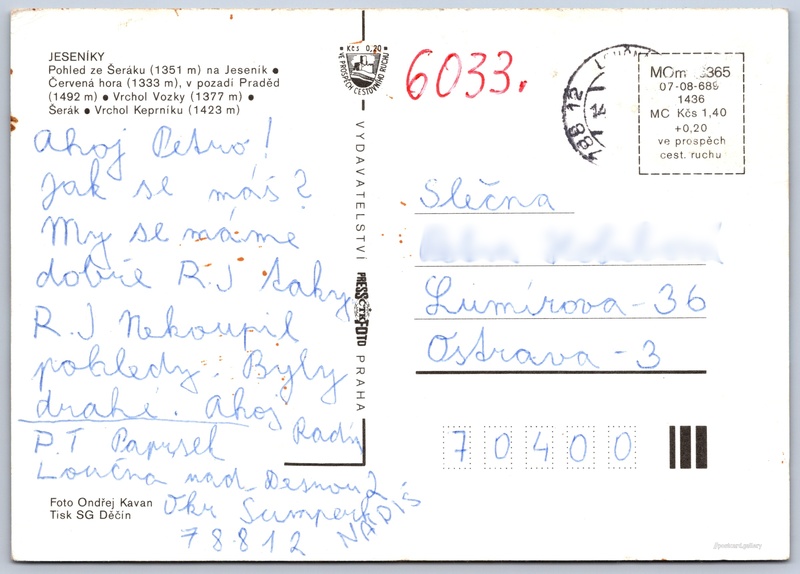 JESENÍKY
Pohled ze Šeráku (1351 m) na Jeseník ●
Červená hora (1333 m), v pozadí Praděd
(1492 m) ● Vrchol Vozky (1377 m) ●
Šerák ● Vrchol Keprníku (1423 m)
Ahoj Petro!
Jak se máš?
My se máme
dobře R.J taky
R.J Nekoupil
pohledy. Byly
drahé. Ahoj
Radin
P.T Papršek
Loučná nad Desnou 2
Okr Šumperk
NAPIŠ
78812
Foto Ondřej Kavan
Tisk SG Děčín
Kčs 0,20
VE PROSPĚCH CESTOVNÍHO RUCHU
VYDAVATELSTVÍ
PRESSFOTO
ČTK
PRAHA
6033.
788 12
MOm 6365
07-08-689
1436
MC Kčs 1,40
+0,20
ve prospěch
cest. ruchu
Slečna
Lumírova-36
Ostrava-3
70400
//postcard.gallery